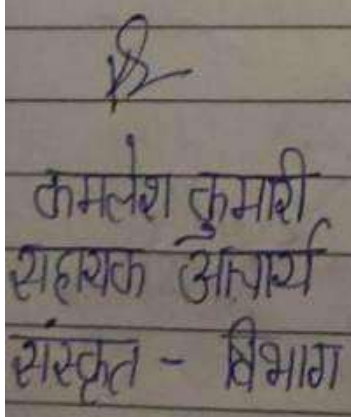 कमलेश कुमारी
सहायक आचार्य
संस्कृत - विभाग